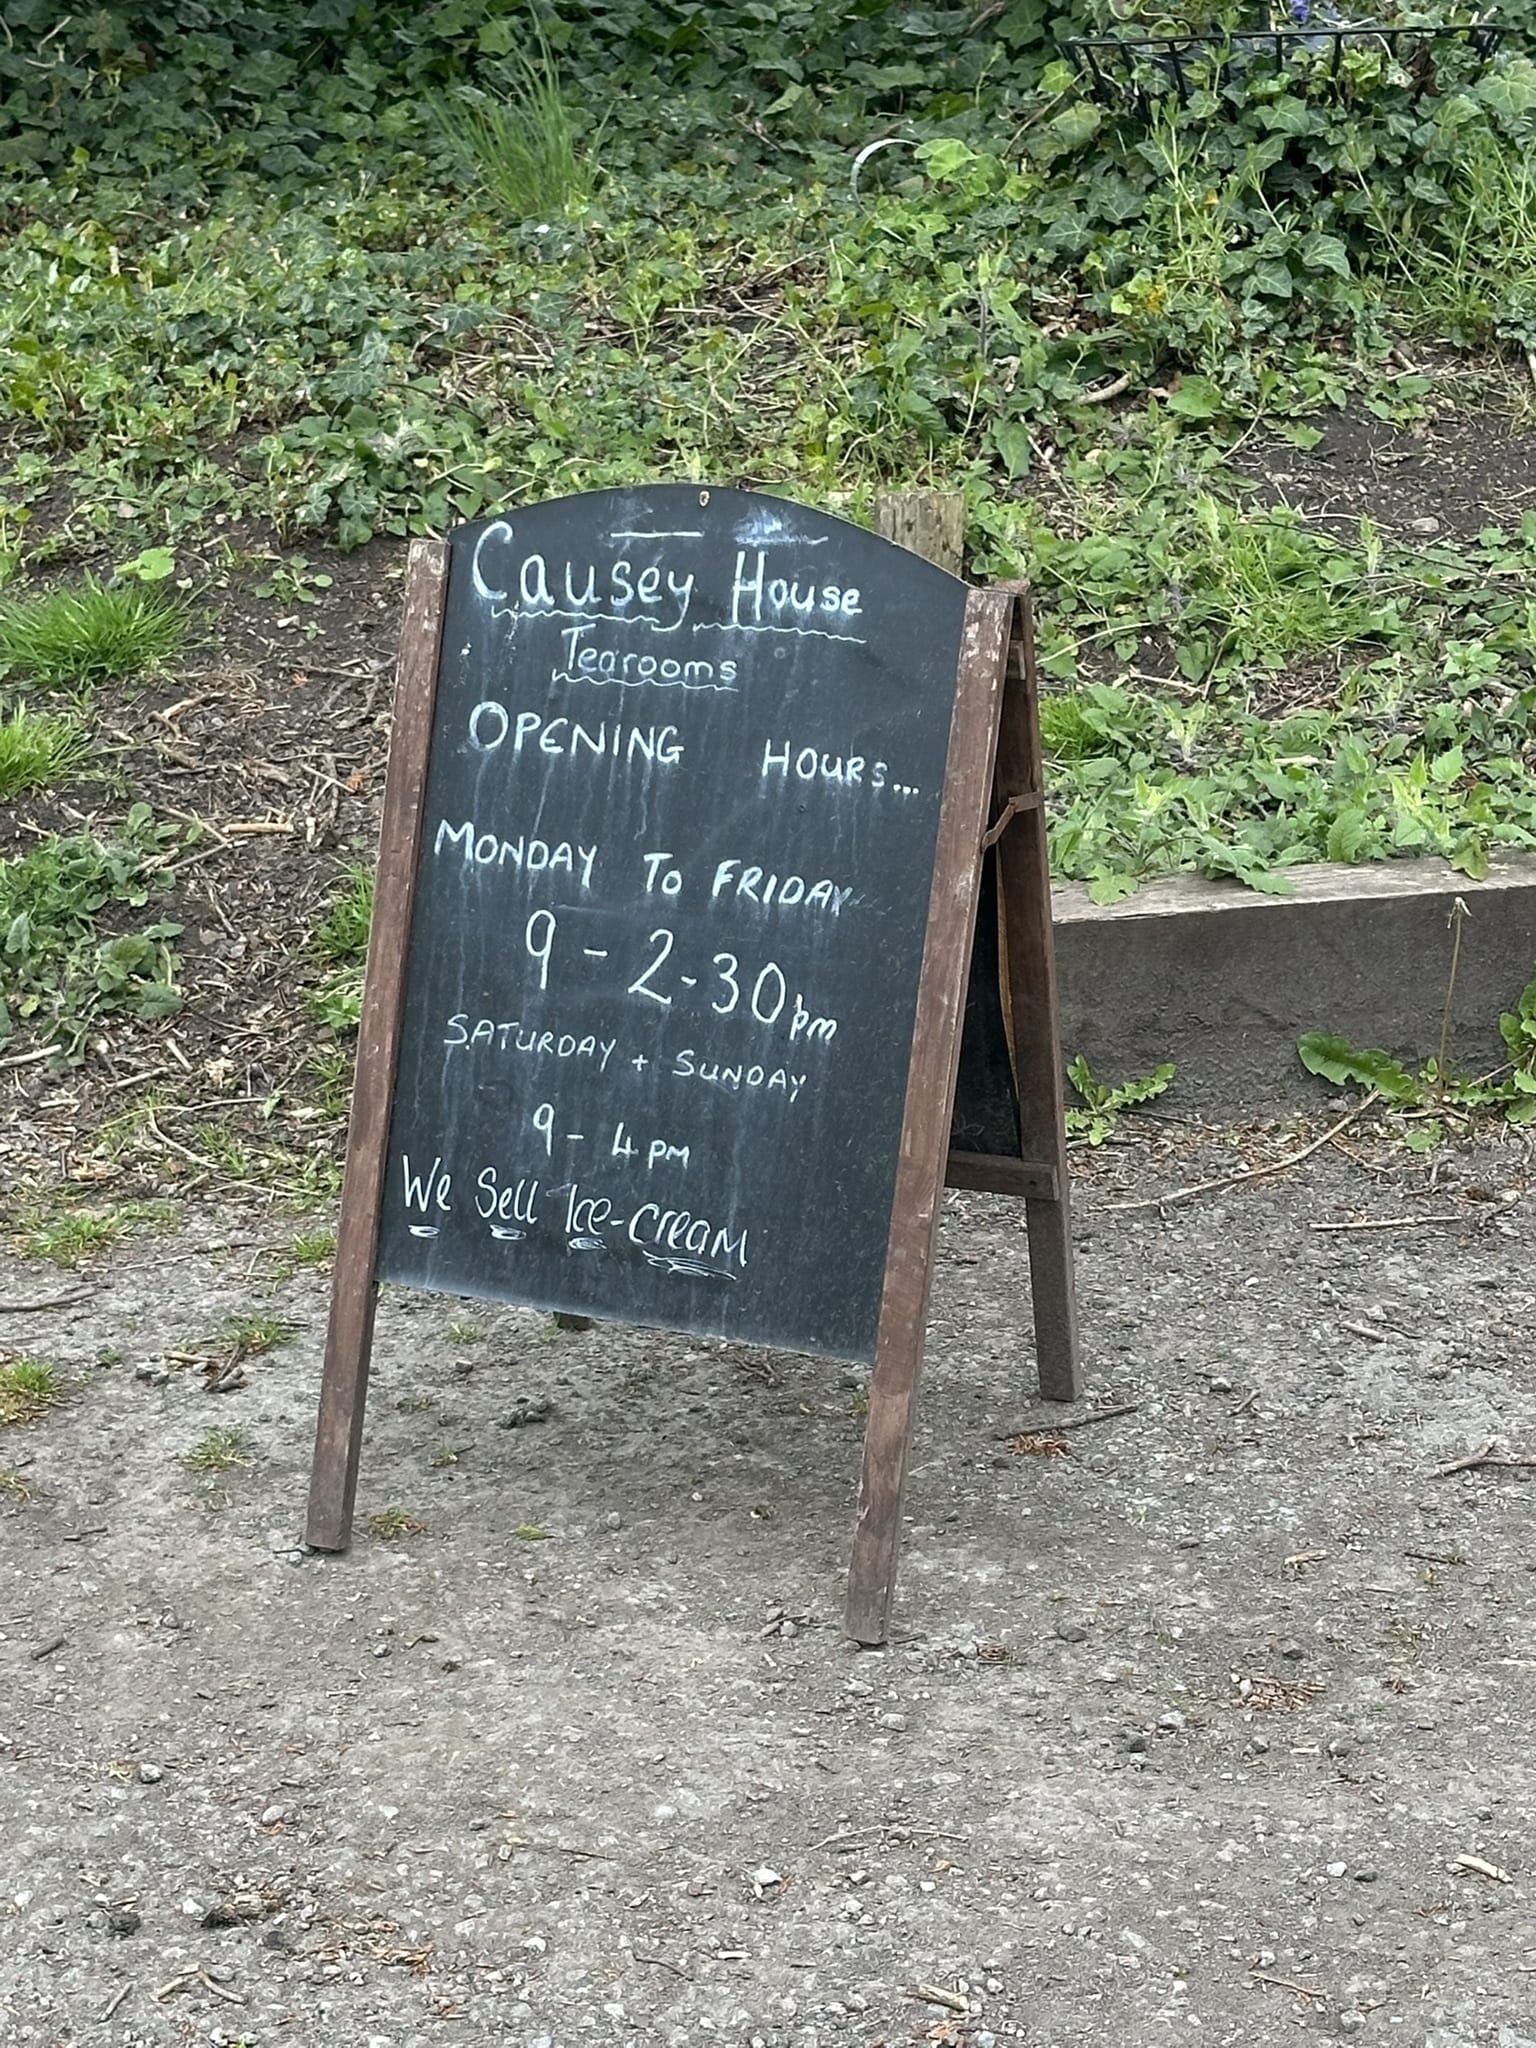 Causey House
Tearooms
OPENING HOURS...
MONDAY To FRIDAY
9 - 2-30pm
SATURDAY + SUNDAY
9 - 4 PM
We Sell Ice-CReaM